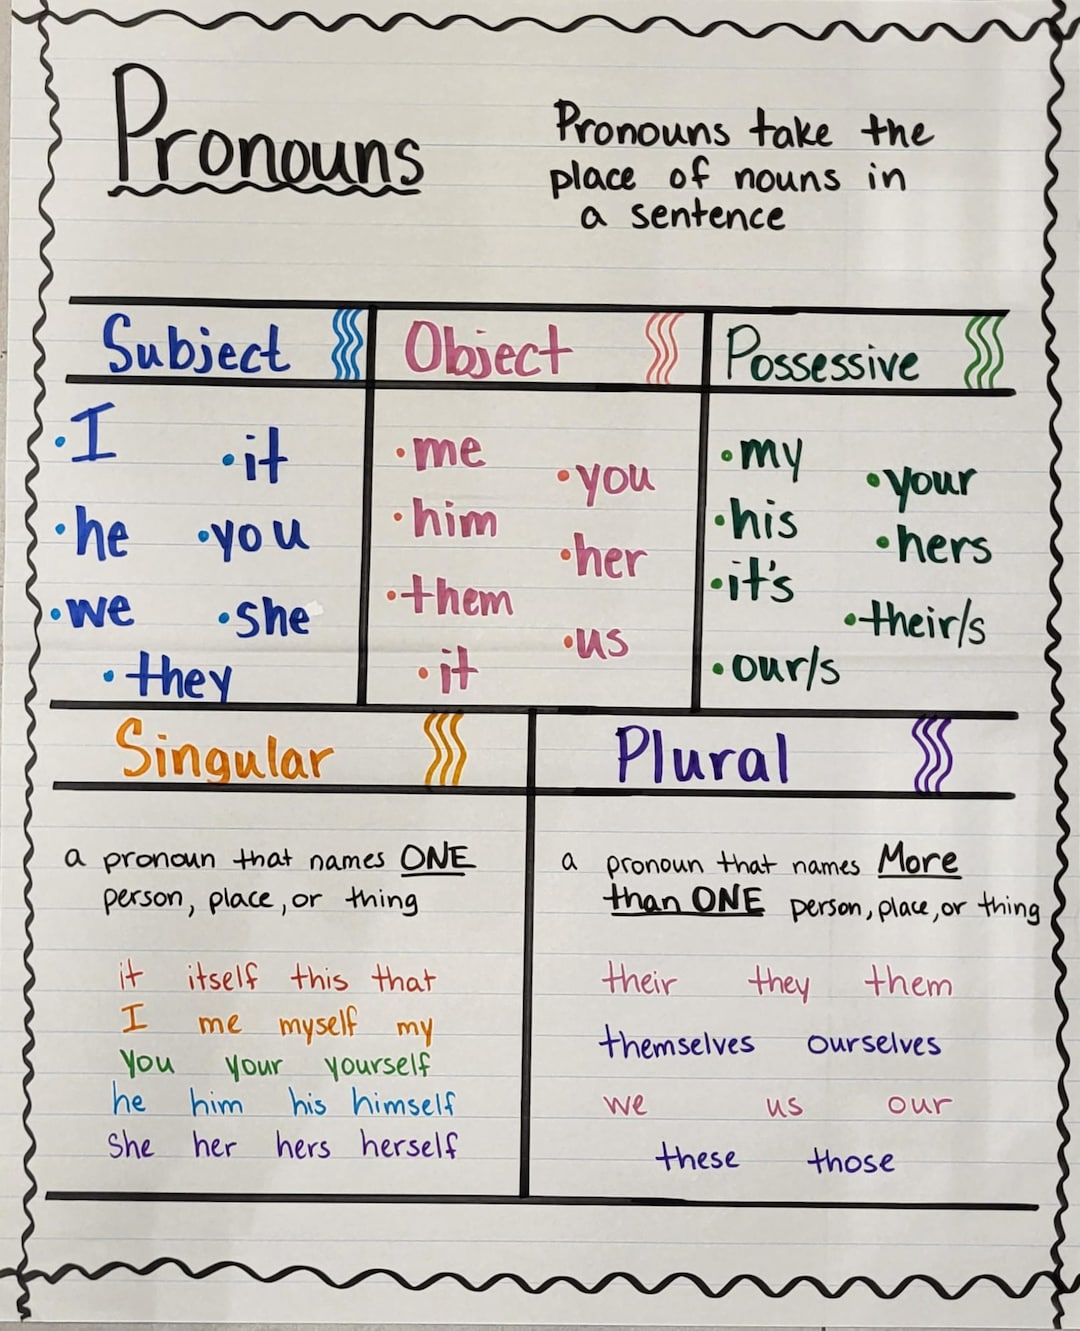 Pronouns
Pronouns take the
place of nouns in
a sentence
Subject
•I
•it
•he •you
•we •she
•they
Object
•me
•you
•him
•her
•them
•us
•it
Possessive
•my
•your
•his
•hers
•it's
•their/s
•our/s
Singular
a pronoun that names ONE
person, place, or thing
it itself this that
I me myself my
You your yourself
he him his himself
She her hers herself
Plural
a pronoun that names More
than ONE person, place, or thing
their they them
themselves ourselves
we us our
these those